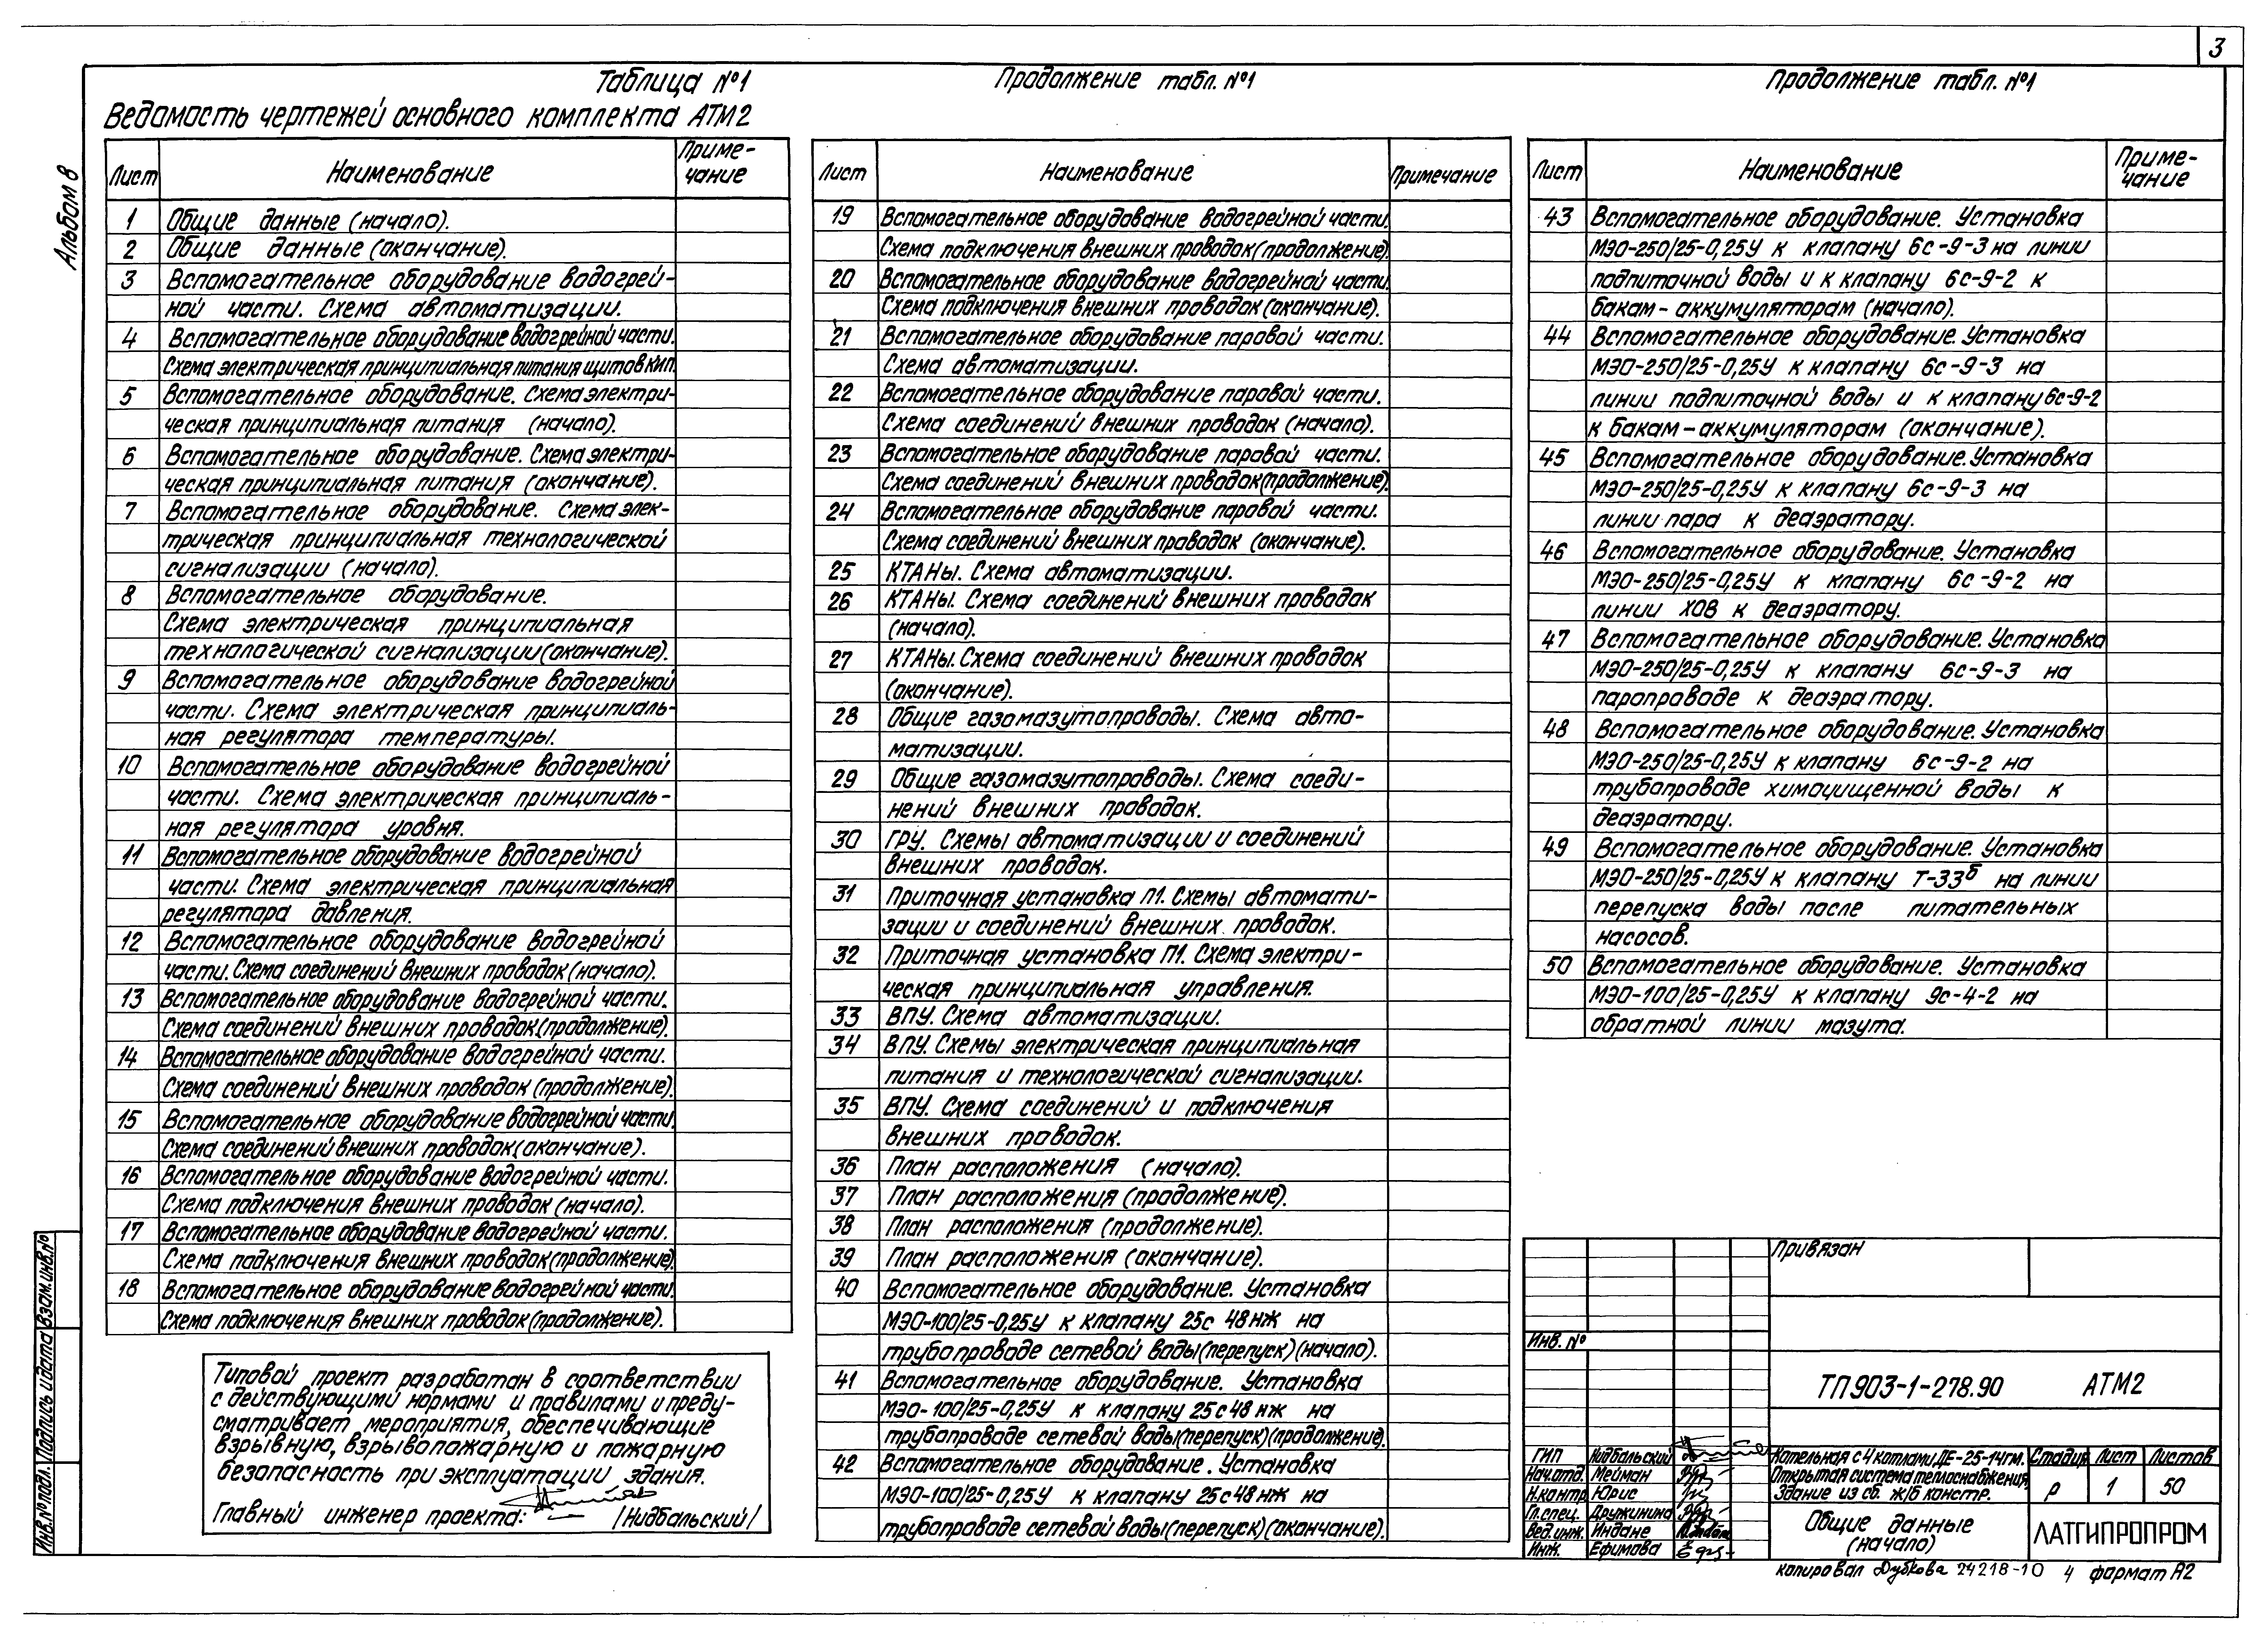 3
Альбом 8
Таблица №1
Ведомость чертежей основного комплекта АТМ2
Лист Наименование Приме-
чание
1 Общие данные (начало).
2 Общие данные (окончание).
3 Вспомогательное оборудование водогрей-
ной части. Схема автоматизации.
4 Вспомогательное оборудование водогрейной части.
Схема электрическая принципиальная питания щитов КИП.
5 Вспомогательное оборудование. Схема электри-
ческая принципиальная питания (начало).
6 Вспомогательное оборудование. Схема электри-
ческая принципиальная питания (окончание).
7 Вспомогательное оборудование. Схема элек-
трическая принципиальная технологической
сигнализации (начало).
8 Вспомогательное оборудование.
Схема электрическая принципиальная
технологической сигнализации (окончание).
9 Вспомогательное оборудование водогрейной
части. Схема электрическая принципиаль-
ная регулятора температуры.
10 Вспомогательное оборудование водогрейной
части. Схема электрическая принципиаль-
ная регулятора уровня.
11 Вспомогательное оборудование водогрейной
части. Схема электрическая принципиальная
регулятора давления.
12 Вспомогательное оборудование водогрейной
части. Схема соединений внешних проводок (начало).
13 Вспомогательное оборудование водогрейной части.
Схема соединений внешних проводок (продолжение).
14 Вспомогательное оборудование водогрейной части.
Схема соединений внешних проводок (продолжение).
15 Вспомогательное оборудование водогрейной части.
Схема соединений внешних проводок (окончание).
16 Вспомогательное оборудование водогрейной части.
Схема подключения внешних проводок (начало).
17 Вспомогательное оборудование водогрейной части.
Схема подключения внешних проводок (продолжение).
18 Вспомогательное оборудование водогрейной части.
Схема подключения внешних проводок (продолжение).
Типовой проект разработан в соответствии
с действующими нормами и правилами и преду-
сматривает мероприятия, обеспечивающие
взрывную, взрывопожарную и пожарную
безопасность при эксплуатации здания.
Главный инженер проекта: /Нидбальский/
Продолжение табл. №1
Лист Наименование Примечание
19 Вспомогательное оборудование водогрейной части.
Схема подключения внешних проводок (продолжение).
20 Вспомогательное оборудование водогрейной части.
Схема подключения внешних проводок (окончание).
21 Вспомогательное оборудование паровой части.
Схема автоматизации.
22 Вспомогательное оборудование паровой части.
Схема соединений внешних проводок (начало).
23 Вспомогательное оборудование паровой части.
Схема соединений внешних проводок (продолжение).
24 Вспомогательное оборудование паровой части.
Схема соединений внешних проводок (окончание).
25 КТАНы. Схема автоматизации.
26 КТАНы. Схема соединений внешних проводок
(начало).
27 КТАНы. Схема соединений внешних проводок
(окончание).
28 Общие газомазутопроводы. Схема авто-
матизации.
29 Общие газомазутопроводы. Схема соеди-
нений внешних проводок.
30 ГРУ. Схемы автоматизации и соединений
внешних проводок.
31 Приточная установка П1. Схемы автомати-
зации и соединений внешних проводок.
32 Приточная установка П1. Схема электри-
ческая принципиальная управления.
33 ВПУ. Схема автоматизации.
34 ВПУ. Схемы электрическая принципиальная
питания и технологической сигнализации.
35 ВПУ. Схема соединений и подключения
внешних проводок.
36 План расположения (начало).
37 План расположения (продолжение).
38 План расположения (продолжение).
39 План расположения (окончание).
40 Вспомогательное оборудование. Установка
МЭО-100/25-0,25У к клапану 25с 48нж на
трубопроводе сетевой воды (перепуск) (начало).
41 Вспомогательное оборудование. Установка
МЭО-100/25-0,25У к клапану 25с48нж на
трубопроводе сетевой воды (перепуск) (продолжение).
42 Вспомогательное оборудование. Установка
МЭО-100/25-0,25У к клапану 25с48нж на
трубопроводе сетевой воды (перепуск) (окончание).
Продолжение табл. №1
Лист Наименование Приме-
чание
43 Вспомогательное оборудование. Установка
МЭО-250/25-0,25У к клапану 6с-9-3 на линии
подпиточной воды и к клапану 6с-9-2 к
бакам-аккумуляторам (начало).
44 Вспомогательное оборудование. Установка
МЭО-250/25-0,25У к клапану 6с-9-3 на
линии подпиточной воды и к клапану 6с-9-2
к бакам-аккумуляторам (окончание).
45 Вспомогательное оборудование. Установка
МЭО-250/25-0,25У к клапану 6с-9-3 на
линии пара к деаэратору.
46 Вспомогательное оборудование. Установка
МЭО-250/25-0,25У к клапану 6с-9-2 на
линии ХОВ к деаэратору.
47 Вспомогательное оборудование. Установка
МЭО-250/25-0,25У к клапану 6с-9-3 на
паропроводе к деаэратору.
48 Вспомогательное оборудование. Установка
МЭО-250/25-0,25У к клапану 6с-9-2 на
трубопроводе химочищенной воды к
деаэратору.
49 Вспомогательное оборудование. Установка
МЭО-250/25-0,25У к клапану Т-33б на линии
перепуска воды после питательных
насосов.
50 Вспомогательное оборудование. Установка
МЭО-100/25-0,25У к клапану 9с-4-2 на
обратной линии мазута.
Привязан
Инв. №
ТП 903-1-278.90 АТМ2
ГИП Нидбальский
Нач.отд. Мейман
Н.контр. Юрис
Гл.спец. Дружинина
Вед.инж. Индане
Инж. Ефимова
Котельная с 4 котлами ДЕ-25-14гм.
Открытая система теплоснабжения.
Здание из сб. ж/б констр.
Стадия Лист Листов
Р 1 50
Общие данные
(начало)
ЛАТГИПРОПРОМ
копировал Дубкова 24218-10 4 формат А2
Инв.№ подл. Подпись и дата Взам.инв.№